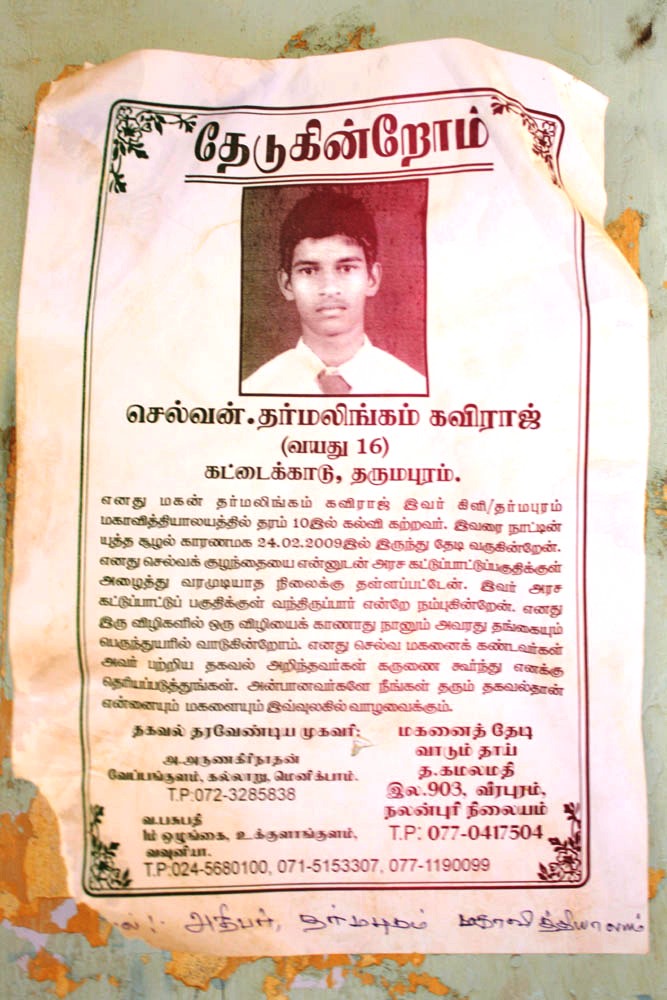 தேடுகின்றோம்
செல்வன்.தர்மலிங்கம் கவிராஜ்
(வயது 16)
கட்டைக்காடு, தருமபுரம்.
எனது மகன் தர்மலிங்கம் கவிராஜ் இவர் கிளி/தர்மபுரம்
மகாவித்தியாலயத்தில் தரம் 10இல் கல்வி கற்றவர். இவரை நாட்டின்
யுத்த சூழல் காரணமாக 24.02.2009இல் இருந்து தேடி வருகின்றேன்.
எனது செல்வக் குழந்தையை என்னுடன் அரச கட்டுப்பாட்டுப்பகுதிக்குள்
அழைத்து வரமுடியாத நிலைக்கு தள்ளப்பட்டேன். இவர் அரச
கட்டுப்பாட்டுப் பகுதிக்குள் வந்திருப்பார் என்றே நம்புகின்றேன். எனது
இரு விழிகளில் ஒரு விழியைக் காணாது நானும் அவரது தங்கையும்
பெருந்துயரில் வாடுகின்றோம். எனது செல்வ மகனைக் கண்டவர்கள்
அவர் பற்றிய தகவல் அறிந்தவர்கள் கருணை கூர்ந்து எனக்கு
தெரியப்படுத்துங்கள். அன்பானவர்களே நீங்கள் தரும் தகவல்தான்
என்னையும் மகளையும் இவ்வுலகில் வாழவைக்கும்.
தகவல் தரவேண்டிய முகவரி:
அ.அருணகிரிநாதன்
வேப்பங்குளம், கல்லாறு, மெனிக்பாம்.
T.P:072-3285838
வ.பசுபதி
1ம் ஒழுங்கை, உக்குளாங்குளம்,
வவுனியா.
T.P:024-5680100, 071-5153307, 077-1190099
மகனைத் தேடி
வாடும் தாய்
த.கமலமதி
இல.903, வீரபுரம்,
நலன்புரி நிலையம்
T.P: 077-0417504
அதிபர், தர்மபுரம் மகாவித்தியாலயம்